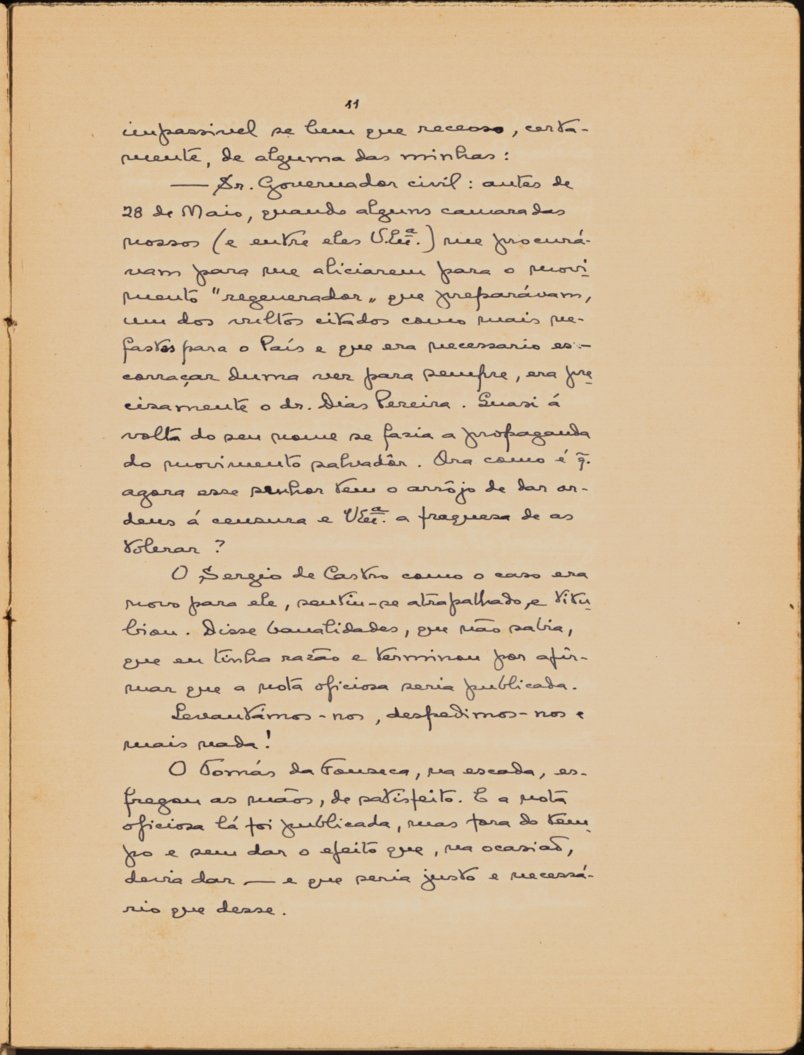 11
impassivel se bem que receoso, certa-
mente, de alguma das minhas:
— Sr. Governador civil: antes de
28 de Maio, quando alguns camaradas
nossos (e entre eles V.Ex.ª) me procurá-
vam para me aliciarem para o movi-
mento "regenerador„ que preparávam,
um dos vultos citados como mais ne-
fastos para o País e que era necessario es-
corraçar duma vez para sempre, era pre-
cisamente o dr. Dias Pereira. Quasi á
volta do seu nome se fazia a propaganda
do movimento salvadôr. Ora como é q̃.
agora esse senhor tem o arrôjo de dar or-
dens á censura e V.Ex.ª a fraquesa de as
tolerar?
O Sergio de Castro como o caso era
novo para ele, sentiu-se atrapalhado, e titu-
biou. Disse banalidades, que não sabia,
que eu tinha razão e terminou por afir-
mar que a nota oficiosa seria publicada.
Levantámos-nos, despedimos-nos e
mais nada!
O Tomás da Fonseca, na escada, es-
fregou as mãos, de satisfeito. E a nota
oficiosa lá foi publicada, mas fora do tem-
po e sem dar o efeito que, na ocasiaõ,
devia dar — e que seria justo e necessá-
rio que desse.